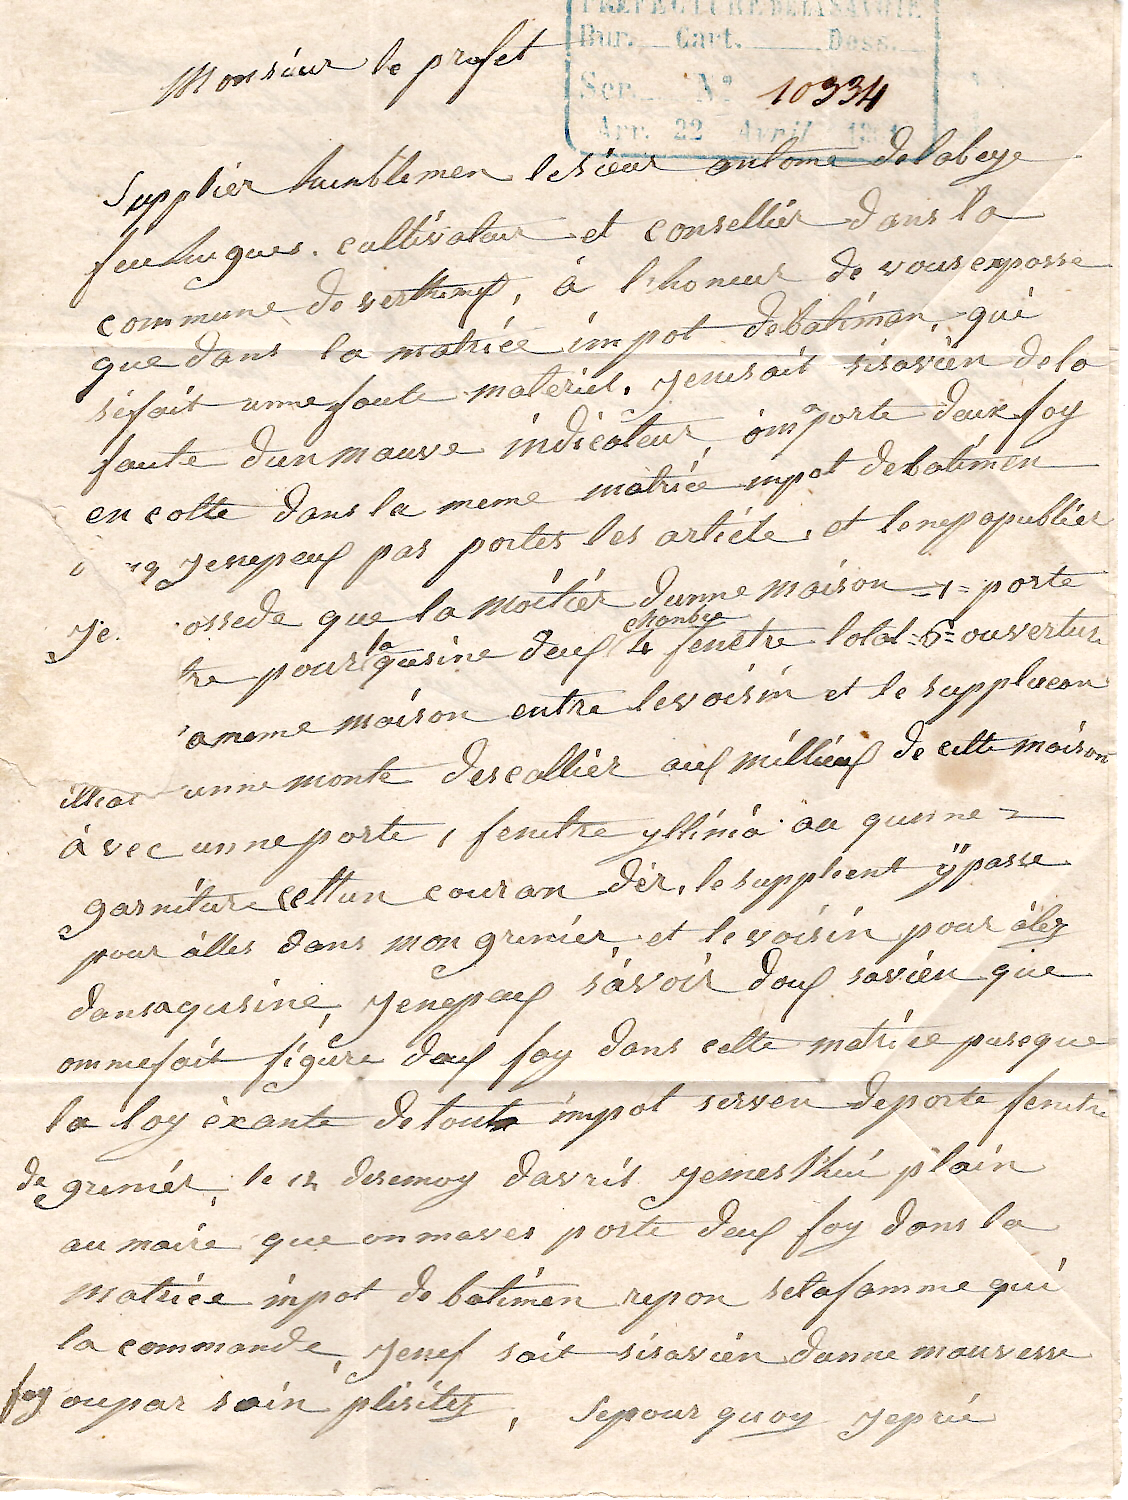 PREFECTURE DE LA SAVOIE
Bur. Cart. Doss.
Ser. N° 10334
Arr. 22 Avril
Monsieur le prefet
Supplier humblemen lesieur antome delabeye
feu hugues. cultivateur et consellier dans la
commune de verthemex, à l'honeur de vous exposse
que dans la matrice impot debatiman, qui
sifait unne faute materiel, jenesait sisavien dela
faute dun mauve indicateur, omporte deux foy
en cotte dans la meme matrice impot debatimen
jenepeux pas portes les article, et lenepapublier
je ossede que la moitier dunne maison =1= porte
tre pour la qusine deux chanbre 4 fenetre total =6= ouverture
ameme maison entre levoisin et le supplacan
illiat unne monte descallier aux millieux de cette maison
avec unne porte, fenetre yllinia au qunne =
garniture cettun couran der, le suppleent ÿpasse
pour alles dans mon grenier, et levoisin pour alez
dansaqusine, jenepeux savoir doux savien que
ommefait figure deux foy dans cette matrice puseque
la loy exante detout impot serven deporte fenetre
de grenier, le 12 desemoy davril jemesthui plain
au maire que onmaves porte deux foy dans la
matrice impot de batimen repon setafamme qui
la commande, jenes sait sisavien danne mauvesse
foy oupar sain plisitez, sepourquoy jeprie